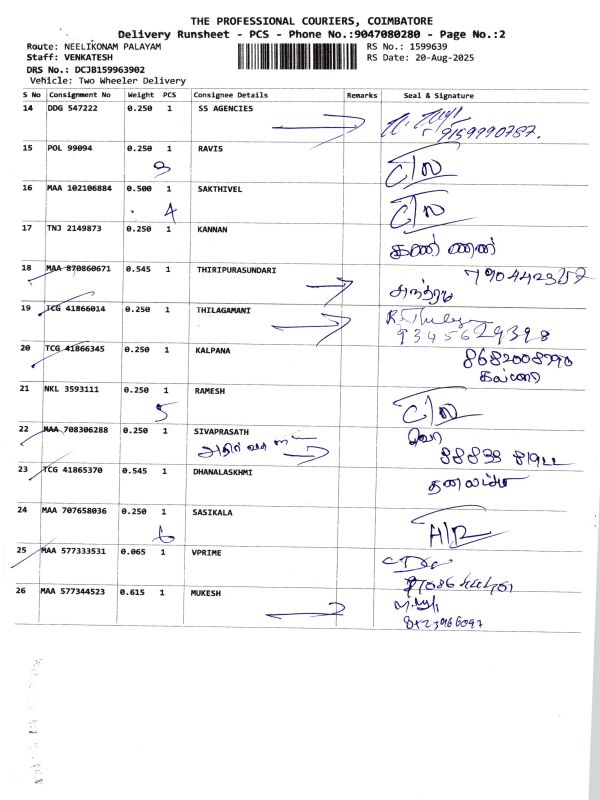 THE PROFESSIONAL COURIERS, COIMBATORE
Delivery Runsheet - PCS - Phone No.:9047080280 - Page No.:2
Route: NEELIKONAM PALAYAM
RS No.: 1599639
Staff: VENKATESH
RS Date: 20-Aug-2025
DRS No.: DCJB159963902
Vehicle: Two Wheeler Delivery
S No Consignment No Weight PCS Consignee Details Remarks Seal & Signature
14 DDG 547222 0.250 1 SS AGENCIES
9159990787.
15 POL 99094 0.250 1 RAVIS C/D
3
16 MAA 102106884 0.500 1 SAKTHIVEL C/D
4
17 TNJ 2149873 0.250 1 KANNAN
கண்ணன்
18 MAA 870860671 0.545 1 THIRIPURASUNDARI
19 TCG 41866014 0.250 1 THILAGAMANI
9345629398
20 TCG 41866345 0.250 1 KALPANA
21 NKL 3593111 0.250 1 RAMESH C/D
5
22 MAA 708306288 0.250 1 SIVAPRASATH
23 TCG 41865370 0.545 1 DHANALASKHMI
24 MAA 707658036 0.250 1 SASIKALA
6
25 MAA 577333531 0.065 1 VPRIME
26 MAA 577344523 0.615 1 MUKESH